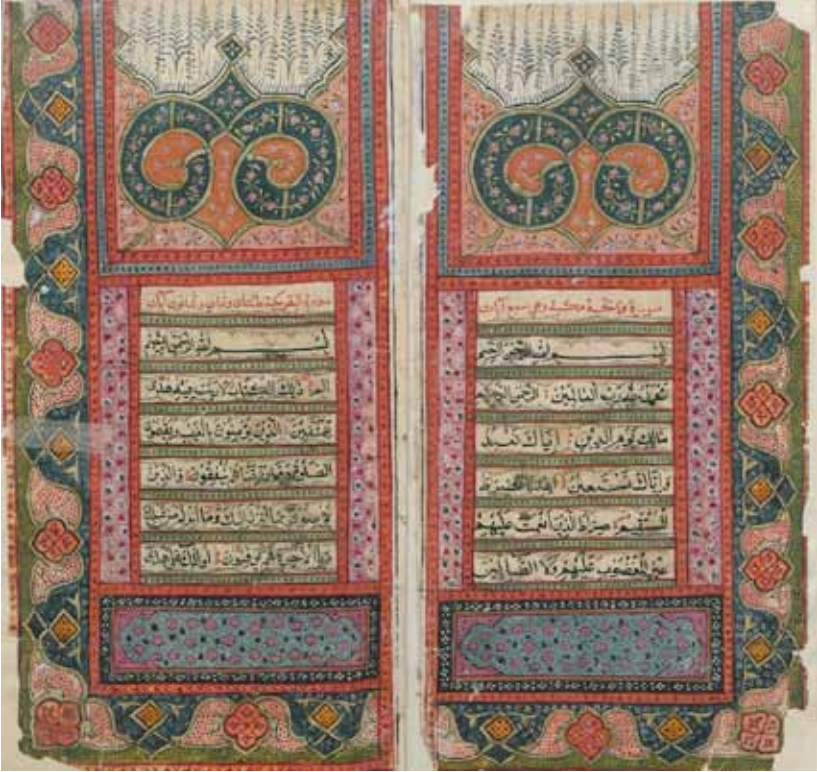 سورة فاتحة مكية وهي سبع آيات
بسم الله الرحمن الرحيم
الحمد لله رب العالمين الرحمن الرحيم
مالك يوم الدين إياك نعبد
وإياك نستعين اهدنا الصراط
المستقيم صراط الذين أنعمت عليهم
غير المغضوب عليهم ولا الضالين
سورة البقرة
بسم الله الرحمن الرحيم
الم ذلك الكتاب لا ريب فيه هدى
للمتقين الذين يؤمنون بالغيب ويقيمون
الصلوة ومما رزقناهم ينفقون والذين
يؤمنون بما أنزل إليك وما أنزل من قبلك
وبالآخرة هم يوقنون أولئك على هدى